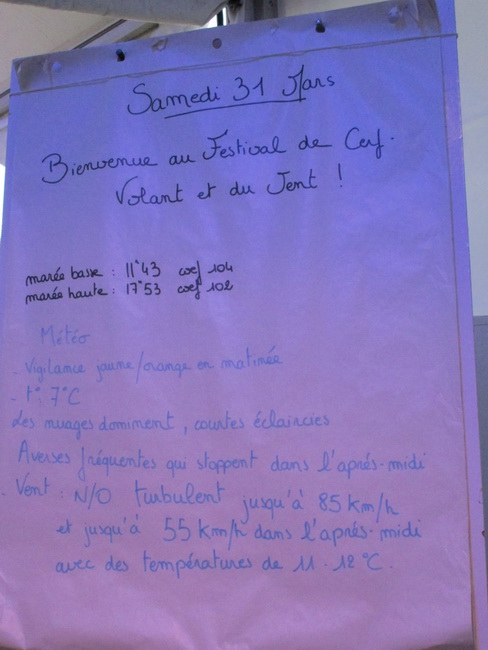 Samedi 31 Mars
Bienvenue au Festival de Cerf.
Volant et du Vent !
marée basse : 11°43 coef 104
marée haute : 17°53 coef 102
Météo
- Vigilance jaune/orange en matinée
- t° : 7°C
Les nuages dominent, courtes éclaircies
Averses fréquentes qui stoppent dans l'après-midi
- Vent : N/O turbulent jusqu'à 85 km/h
et jusqu'à 55 km/h dans l'après-midi
avec des températures de 11-12°C.